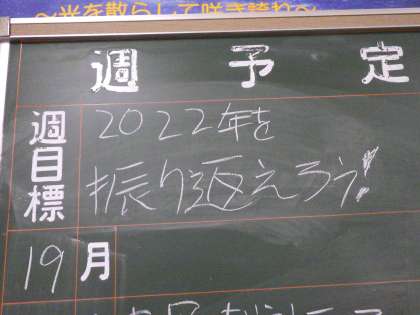 〜光を散らして咲き誇れ〜
週予定
週目標
2022年を
振り返えろう!
19月